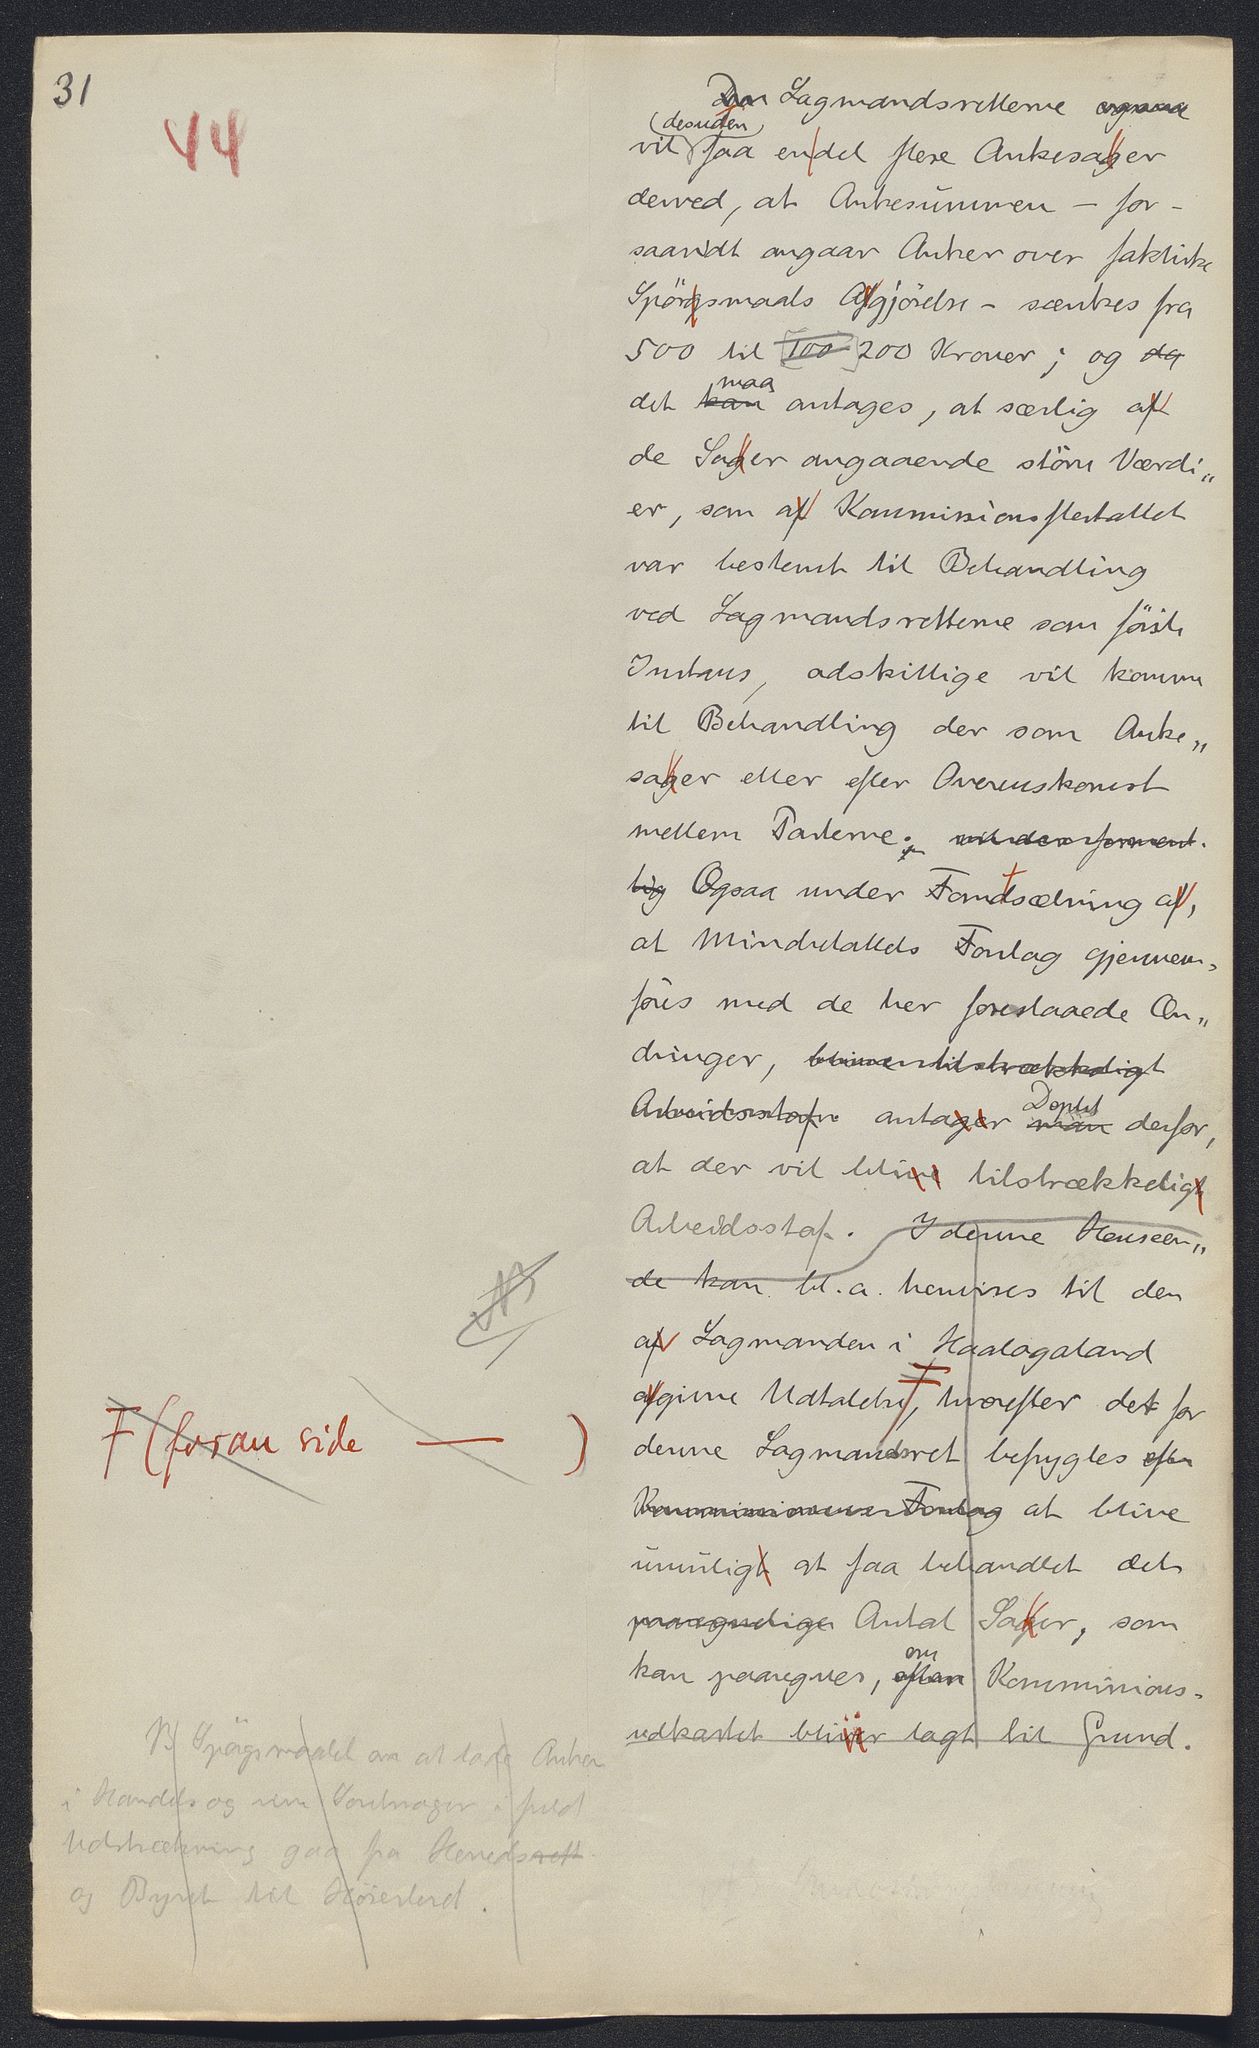 31
44
Den Lagmandsretterne ogsaa
(desuden)
vil faa en del flere Ankesager
derved, at Ankesummen – for-
saavidt angaar Anker over faktiske
Spörgsmaals Afgjörelse – sænkes fra
500 til [100] 200 Kroner; og da
maa
det kan antages, at særlig af
de Sager angaaende större Værdi„
er, som af Kommissionsflertallet
var bestemt til Behandling
ved Lagmandsretterne som förste
Instans, adskillige vil komme
til Behandling der som Anke„
sager eller efter Overenskomst
mellem Parterne. vil der forment-
lig Ogsaa under Forudsætning af,
at Mindretallets Forslag gjennem-
föres med de her foreslaaede Æn„
dringer, blive tilstrækkeligt
Arbeidsstof. antager Deptet man derfor,
at der vil blive tilstrækkeligt
Arbeidsstof. I denne Henseen„
de kan bl.a. henvises til den
af Lagmanden i Haalogaland
afgivne Udtalelse F, hvorefter det for
denne Lagmandsret befrygtes efter
Kommissionens Forslag at blive
umuligt at faa behandlet det
paaregnelige Antal Sager, som
om
kan paaregnes, efter Kommissions-
udkastet bliver lagt til Grund.
F (foran side — )
B Spörgsmaalet om at lade Anker
i Handels og Söretssager i fuld
Udstrækning gaa fra Herredsrett
og Byret til Höiesteret.